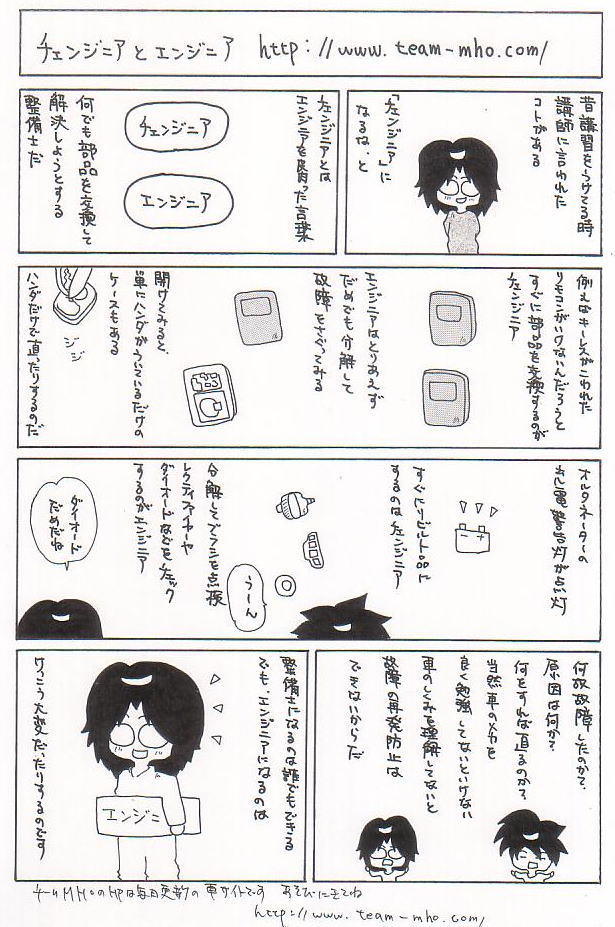 チェンジニアとエンジニア http://www.team-mho.com/
昔講習をうけてる時
講師に言われた
コトがある
「チェンジニア」に
なるな.と
チェンジニアとは
エンジニアを皮肉った言葉
チェンジニア
エンジニア
何でも部品を交換して
解決しようとする
整備士だ
例えばキーレスがこわれた
リモコンがいけないんだろうと
すぐに部品を交換するのが
チェンジニア
エンジニアはとりあえず
だめでも分解して
故障をさぐってみる
開けてみると、
単にハンダがういているだけの
ケースもある
ジジ
ハンダだけで直ったりするのだ
オルタネーターの
充電警告灯が点灯
すぐにリビルト品に
するのはチェンジニア
うーん
分解してブラシを点検
レクティファイヤーや
ダイオードなどをチェック
するのがエンジニア
ダイオード
だめだね
何故故障したのか?
原因は何か?
何をすれば直るのか?
当然車のメカを
良く勉強してないといけない
車のしくみを理解してないと
故障の再発防止は
できないからだ
整備士になるのは誰でもできる
でも、エンジニアになるのは
エンジニ
けっこう大変だったりするのです
チームMHOのHPは毎日更新の車サイトです あそびにきてね
http://www.team-mho.com/